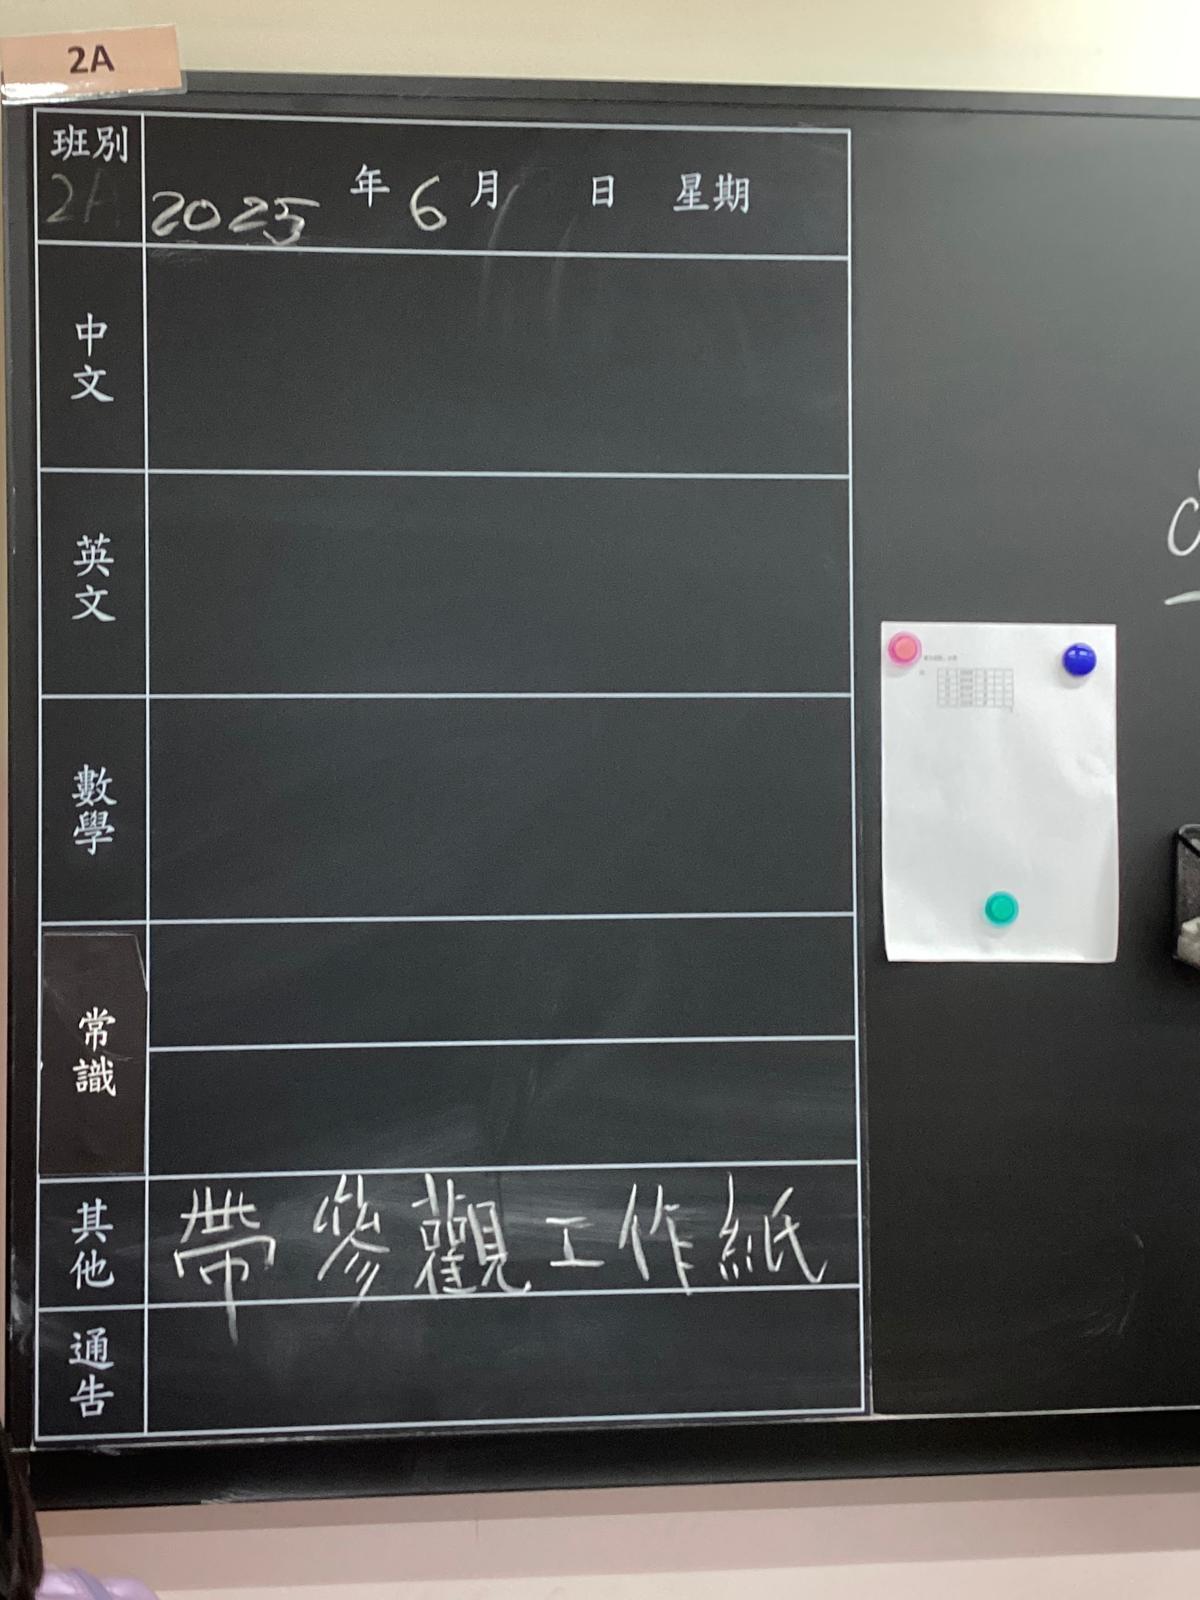 2A
班別
2A
2025 年 6 月 日 星期
中文
英文
數學
常識
其他
帶參觀工作紙
通告